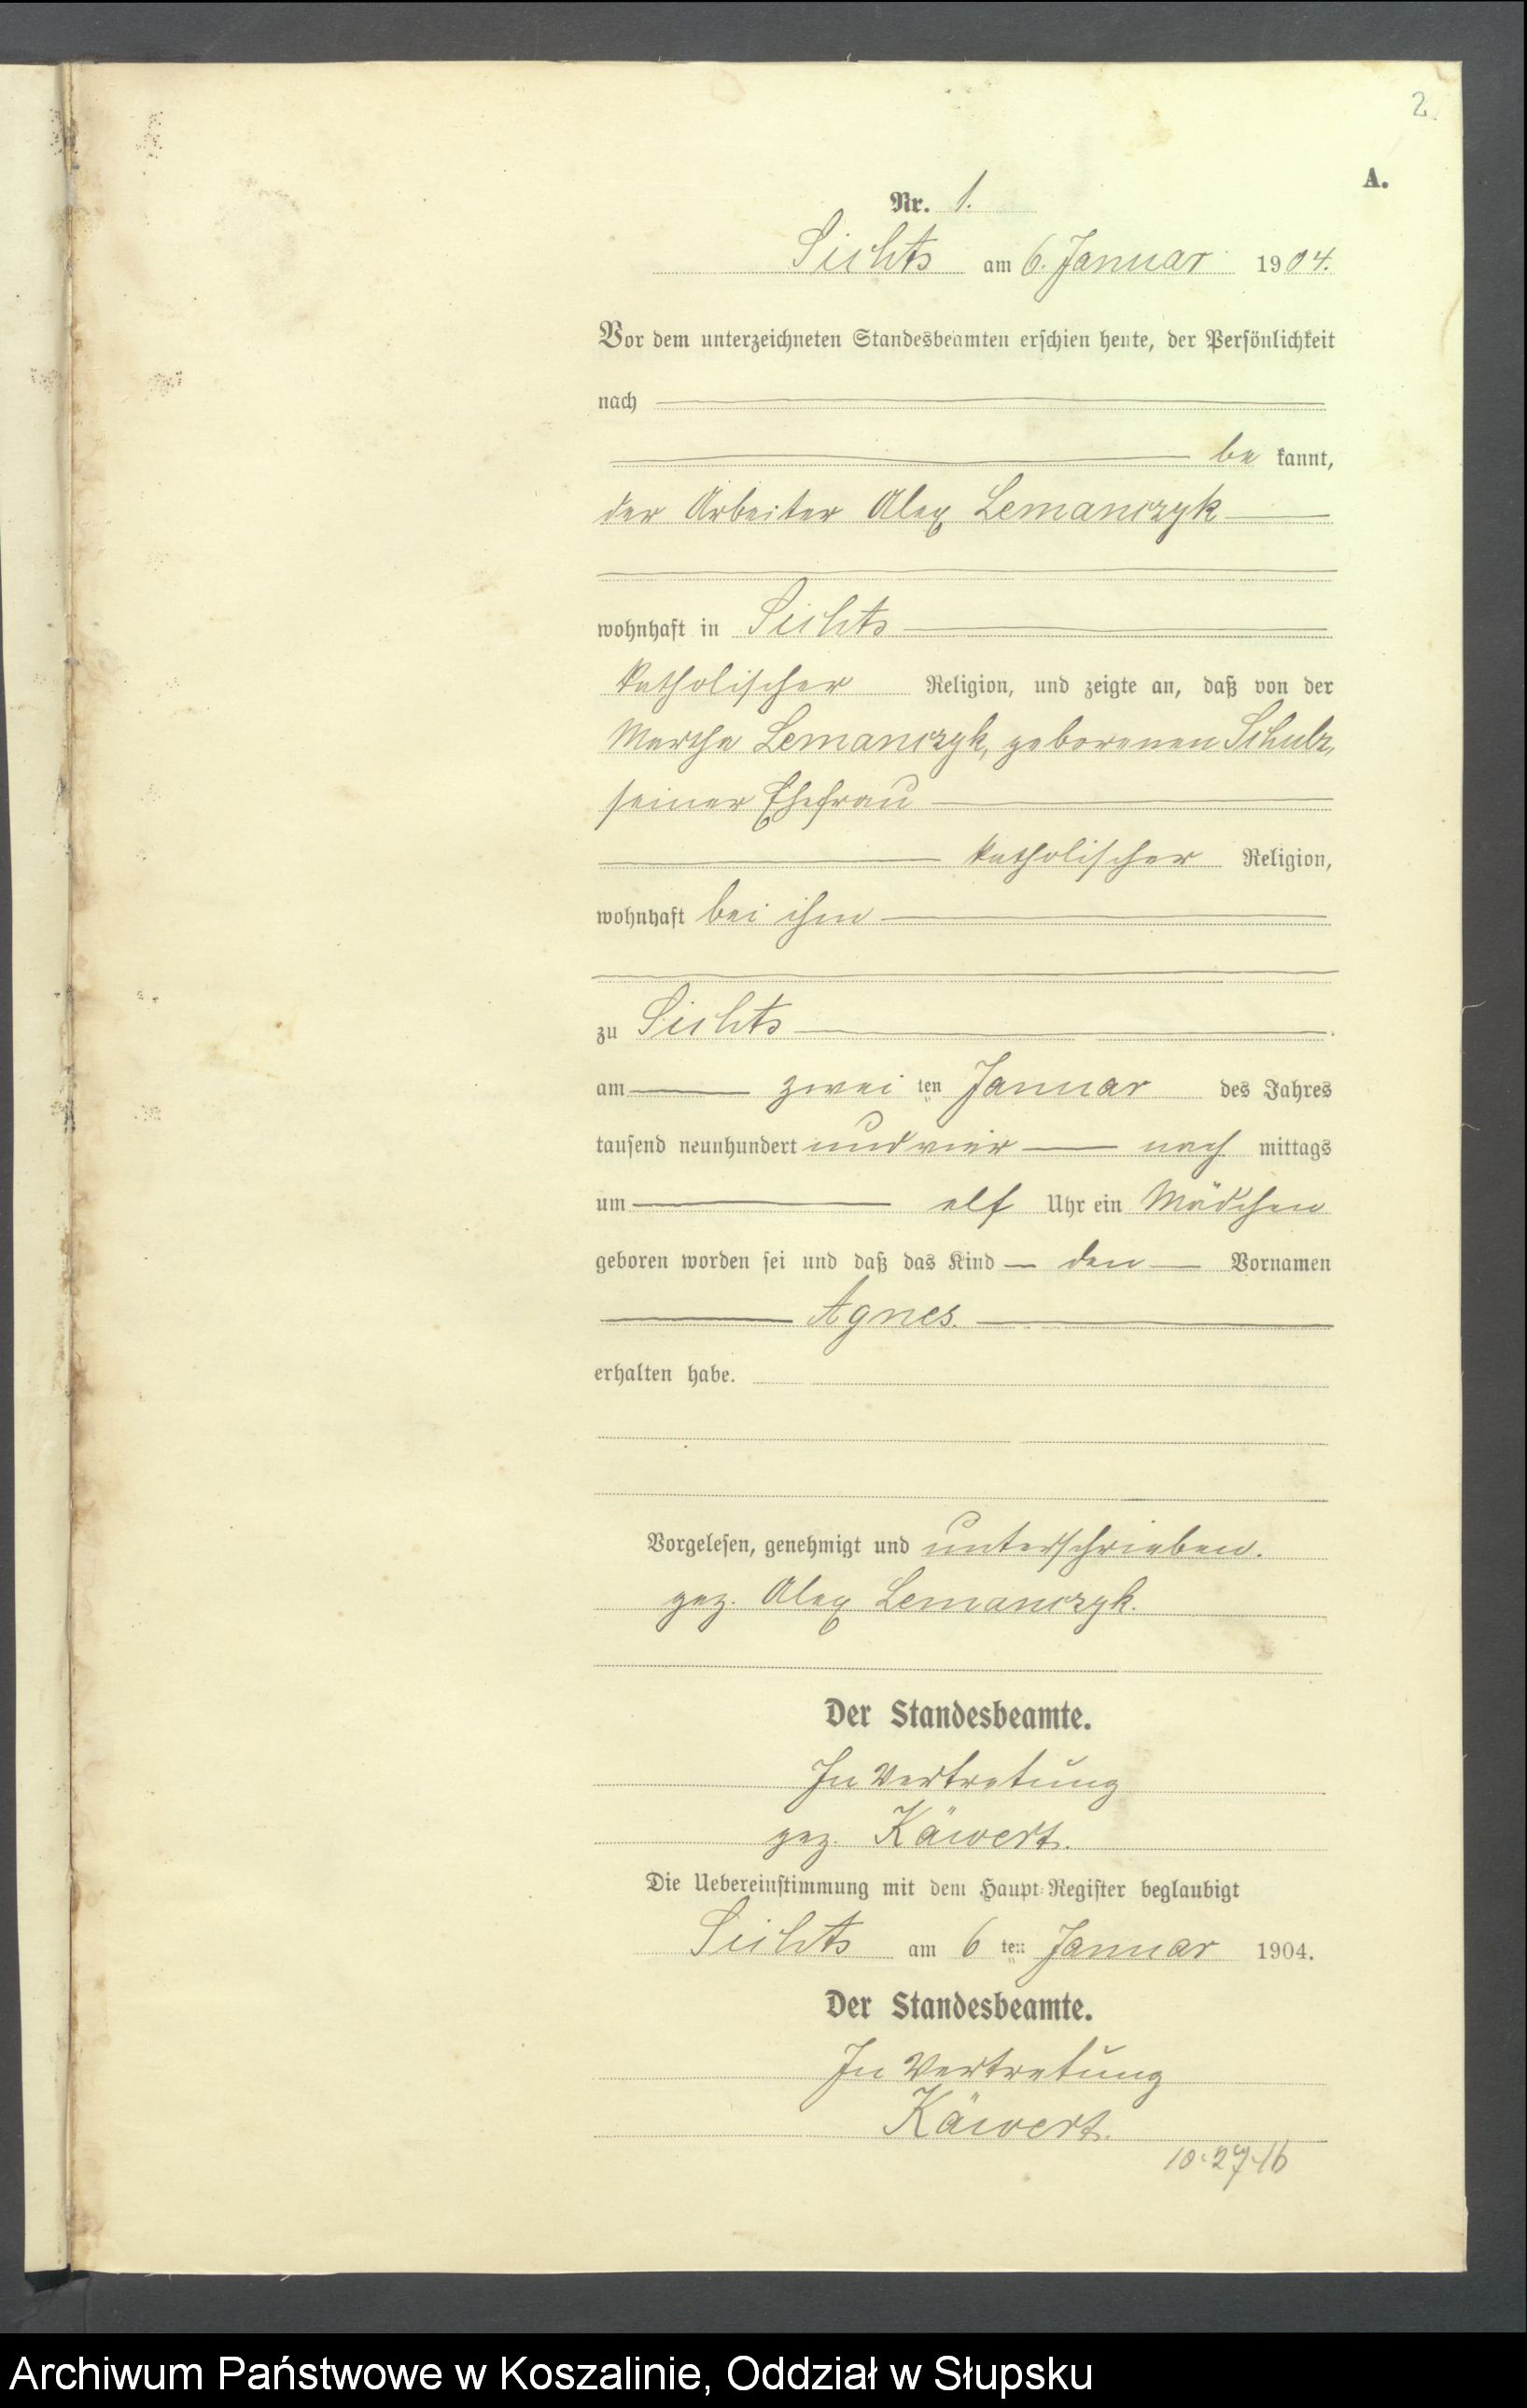 2.
A.
Nr. 1.
Sichts am 6. Januar 1904.
Vor dem unterzeichneten Standesbeamten erschien heute, der Persönlichkeit
nach
be kannt,
der Arbeiter Alex Lemanczyk
wohnhaft in Sichts
katholischer Religion, und zeigte an, daß von der
Martha Lemanczyk, geborenen Schulz,
seiner Ehefrau
katholischer Religion,
wohnhaft bei ihm
zu Sichts
am zwei ten Januar des Jahres
tausend neunhundert und vier nach mittags
um elf Uhr ein Mädchen
geboren worden sei und daß das Kind den Vornamen
Agnes.
erhalten habe.
Vorgelesen, genehmigt und unterschrieben.
gez. Alex Lemanczyk.
Der Standesbeamte.
In Vertretung
gez. Käwert.
Die Uebereinstimmung mit dem Haupt-Register beglaubigt
Sichts am 6 ten Januar 1904.
Der Standesbeamte.
In Vertretung
Käwert.
Archiwum Państwowe w Koszalinie, Oddział w Słupsku